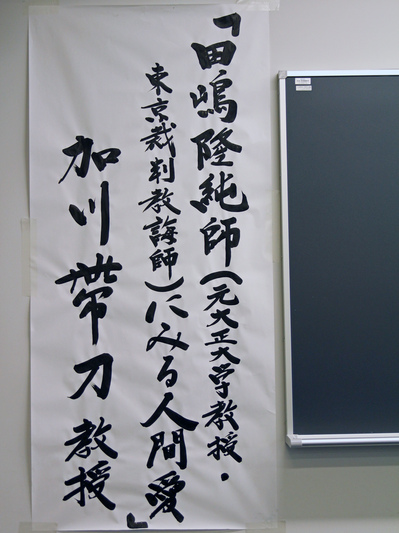 「田嶋隆純師(元大正大学教授・
東京裁判教誨師)にみる人間愛」
加川帯刀教授